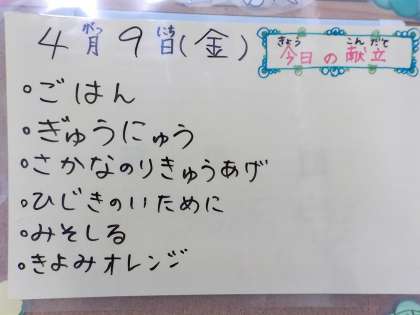 4月9日(金)
がつ にち
今日の献立
きょう こんだて
ごはん
ぎゅうにゅう
さかなのりきゅうあげ
ひじきのいために
みそしる
きよみオレンジ